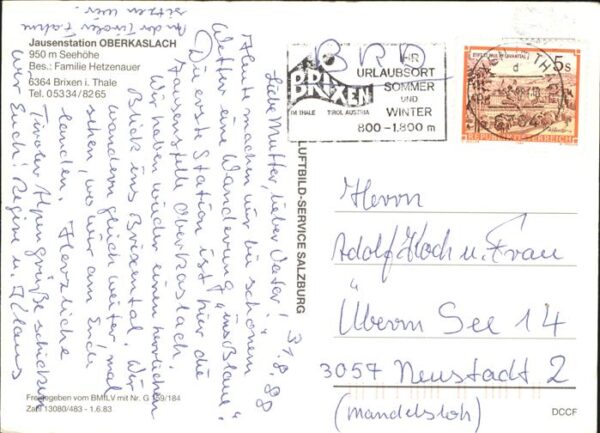 Jausenstation OBERKASLACH
950 m Seehöhe
Bes.: Familie Hetzenauer
6364 Brixen i. Thale
Tel. 05334/8265
BRD
BRIXEN
IM THALE TIROL AUSTRIA
IHR
URLAUBSORT
SOMMER
UND
WINTER
800-1.800 m
5s
REPUBLIK ÖSTERREICH
LUFTBILD-SERVICE SALZBURG
31.8.88
Liebe Mutter, lieber Vater!
Heute machen wir bei schönem
Wetter eine Wanderung „ins Blaue".
Die erste Station ist hier die
Jausenstelle Oberkaslach.
Wir haben wieder einen herrlichen
Blick ins Brixental. Wir
wandern gleich weiter, mal
sehen, wo wir am Ende
landen. Herzliche
Tiroler Alpengrüße schicken
wir Euch! Regine u. Klaus
An der Tiroler Fahne
sitzen wir.
Herrn
Adolf Koch u. Frau
Übern See 14
3057 Neustadt 2
(Mandelsloh)
Freigegeben vom BMfLV mit Nr. G 169/184
Zahl 13080/483 - 1.6.83
DCCF